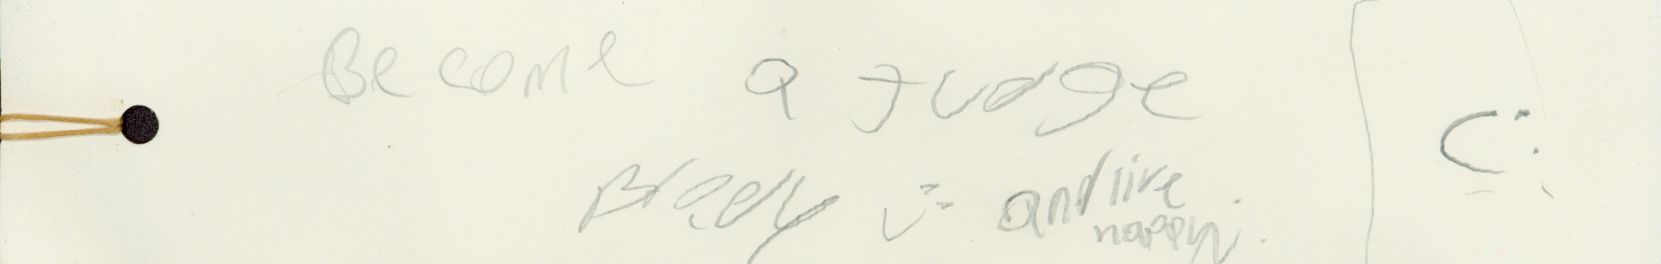 Become a Judge
Brady :) and live
happy.
C: